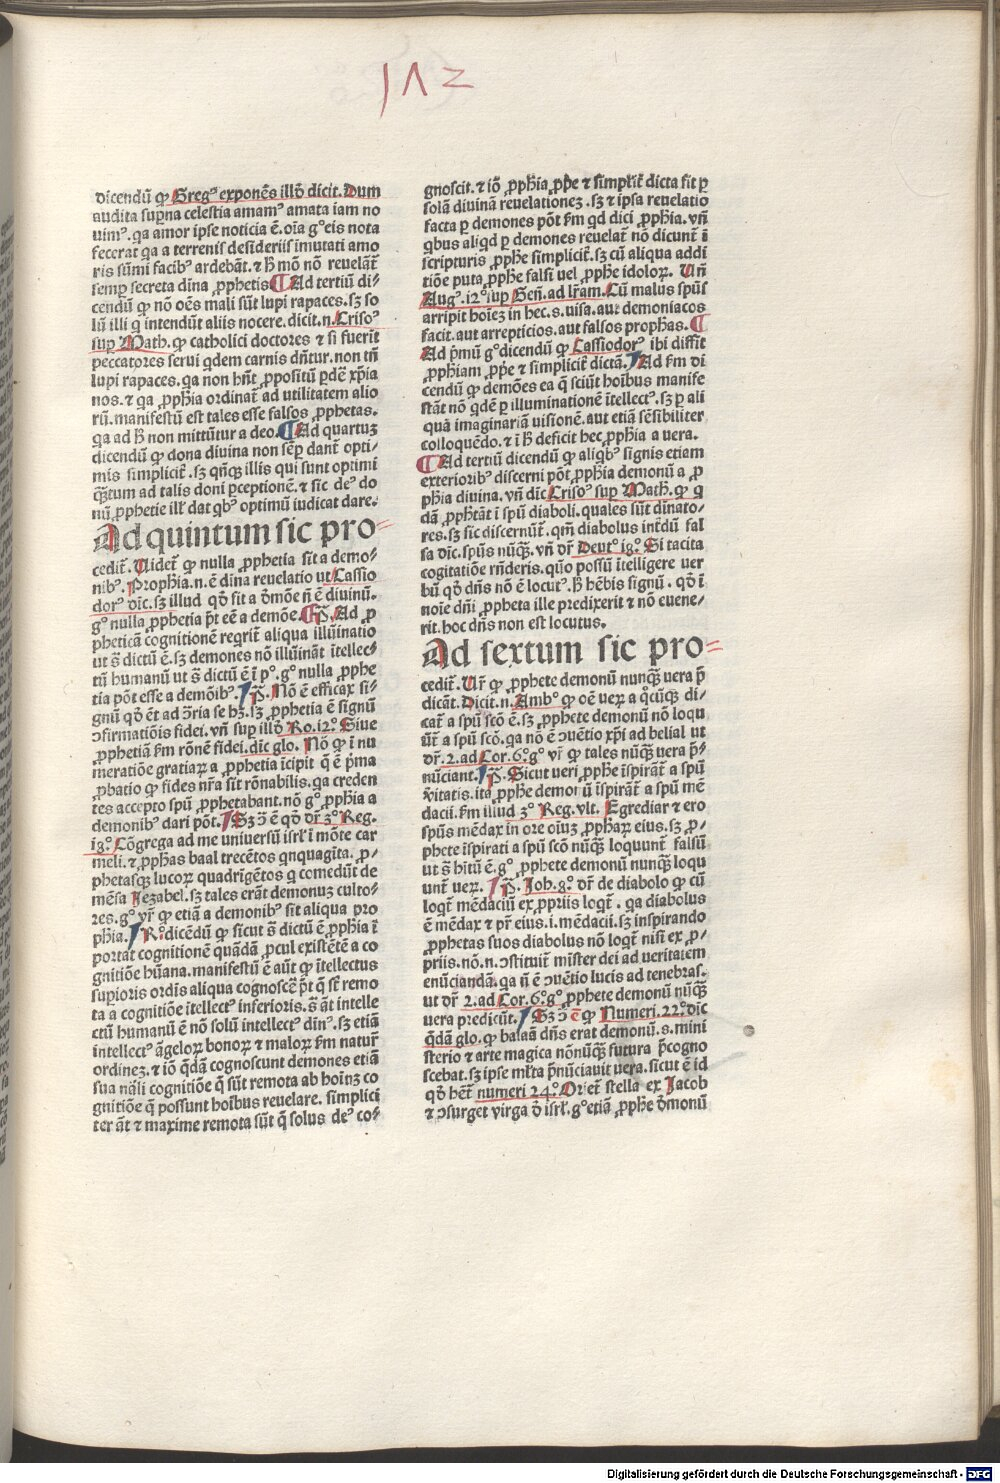 172
dicendū ꝙ Greg⁹ exponēs illō dicit. Dum
audita suꝑna celestia amam⁹ amata iam no
uim⁹. qa amor ipse noticia ē. oīa gͦ eis nota
fecerat qa a terrenis desideriis īmutati amo
ris sūmi facib⁹ ardebāt. ⁊ h̄ mō nō reuelāt̄
semꝑ secreta dīna ꝓphetis ¶Ad tertiū di-
cendū ꝙ nō oēs mali sūt lupi rapaces. sꝫ so
lū illi q̄ intendūt aliis nocere. dicit. n. Crisoꝰ
suꝑ Math. ꝙ catholici doctores ⁊ si fuerīt
peccatores serui qdem carnis dn̄tur. non tn̄
lupi rapaces. qa non hn̄t ꝓpositū ꝑdē xp̄ia
nos. ⁊ qa ꝓphīa ordinat̄ ad utilitatem alio
rū. manifestū est tales esse falsos ꝓphetas.
qa ad h̄ non mittūtur a deo. ¶Ad quartuꝫ
dicendū ꝙ dona diuina non sēꝑ dant̄ opti-
mis simplicit̄. sꝫ qn̄qꝫ illis qui sunt optimi
qꝫtum ad talis doni ꝑceptionē. ⁊ sic de⁹ do
nū ꝓphetie ill̄ dat qb⁹ optimū iudicat dare.
Ad quintum sic pro-
cedit̄. Uidet̄ ꝙ nulla ꝓphetia sit a demo-
nib⁹. Prophīa. n. ē dīna reuelatio ut Cassio
dor⁹ dīc. sꝫ illud qd̄ sit a dmōe n̄ ē diuinū.
gͦ nulla ꝓphetia pt̄ eē a demōe. ¶P̄. Ad ꝓ
pheticā cognitionē reqrit̄ aliqua illūinatio
ut s̄ dictū ē. sꝫ demones nō illūināt ītellec-
tū humanū ut s̄ dictū ē ī pͦ. gͦ nulla ꝓphe
tia pōt esse a demōib⁹. P̄. Nō ē efficax si-
gnū qd̄ ēt ad ꝯria se hꝫ. sꝫ ꝓphetia ē signū
ꝯfirmatiōis fidei. vn̄ suꝑ illō Ro. 12º. Siue
ꝓphetiā ẜm rōnē fidei. dīc glo. Nō ꝙ ī nu
meratiōe gratiaꝝ a ꝓphetia īcipit q̄ ē pͥma
ꝓbatio ꝙ fides nr̄a sit rōnabilis. qa creden
tes accepto spū ꝓphetabant. nō gͦ ꝓphīa a
demonib⁹ dari pōt. Sꝫ ꝯ ē qd̄ dr̄ 3º Reg.
18º. Cōgrega ad me uniuersū isrl̄ ī mōte car
meli. ⁊ ꝓphas baal trecētos qnquagīta. ꝓ-
phetasqꝫ lucoꝝ quadrīgētos q̄ comedūt de
mēsa Jezabel. sꝫ tales erāt demonuꝫ culto-
res. gͦ vr̄ ꝙ etiā a demonib⁹ sit aliqua pro
phīa. Rͦ dicēdū ꝙ sicut s̄ dictū ē ꝓphīa ī
portat cognitionē quādā ꝓcul existētē a co
gnitiōe hūana. manifestū ē aūt ꝙ ītellectus
suꝑioris ordīs aliqua cognoscē pt̄ q̄ sūt remo
ta a cognitiōe ītellect⁹ inferioris. s̄ aūt intelle
ctū humanū ē nō solū intellect⁹ dīn⁹. sꝫ etiā
intellect⁹ āgeloꝝ bonoꝝ ⁊ maloꝝ ẜm natur̄
ordineꝫ. ⁊ iō qdā cognoscunt demones etiā
sua nāli cognitiōe q̄ sūt remota ab hoīnꝫ co
gnitiōe q̄ possunt hoībus reuelare. simplici
ter āt ⁊ maxime remota sūt q̄ solus de⁹ co-
gnoscit. ⁊ iō ꝓphīa ꝓpe ⁊ simplicit̄ dicta fit ꝑ
solā diuinā reuelationeꝫ. sꝫ ⁊ ipsa reuelatio
facta ꝑ demones pōt ẜm qd dici ꝓphīa. vn̄
qbus aliqd ꝑ demones reuelat̄ nō dicunt̄ ī
scripturis ꝓphe simplicit̄. sꝫ cū aliqua addi
tiōe puta ꝓphe falsi uel ꝓphe idoloꝝ. Un̄
Aug⁹. 12º suꝑ Gen̄. ad lr̄am. Cū malus spūs
arripit hoīeꝫ in hec. s. uisa. aut demoniacos
facit. aut arrepticios. aut falsos prophas. ¶
Ad pͥmū gͦ dicendū ꝙ Cassiodor⁹ ibi diffīt
ꝓphiam ꝓpe ⁊ simplicit̄ dictā. Ad ẜm di
cendū ꝙ demōes ea q̄ sciūt hoībus manife
stāt nō qdē ꝑ illuminationē ītellect⁹. sꝫ ꝑ ali
quā imaginariā uisionē. aut etiā sēsibiliter
colloquēdo. ⁊ ī h̄ deficit hec ꝓphīa a uera.
¶Ad tertiū dicendū ꝙ aliqb⁹ signis etiam
exteriorib⁹ discerni pōt ꝓphia demonū a ꝓ
phīa diuina. vn̄ dīc Crisoꝰ suꝑ Math. ꝙ q
dā ꝓphāt ī spū diaboli. quales sūt dīnato-
res. sꝫ sic discernūt̄. qm̄ diabolus intdū fal
sa dīc. spūs nūqꝫ. vn̄ dr̄ Deut⁹ 18º. Si tacita
cogitatiōe rn̄deris. quō possū ītelligere uer
bū qd̄ dn̄s nō ē locut⁹. h̄ hēbis signū. qd̄ ī
noīe dn̄i ꝓpheta ille predixerit ⁊ nō euene-
rit. hoc dn̄s non est locutus.
Ad sextum sic pro-
cedit̄. Ur̄ ꝙ ꝓphete demonū nunqꝫ uera p̄
dicāt. Dicit. n. Amb⁹ ꝙ oē ueꝝ a qcūqꝫ di-
cat̄ a spū scō ē. sꝫ ꝓphete demonū nō loqu
ūt̄ a spū scō. qa nō ē ꝯuētio xp̄i ad belial ut
dr̄. 2. ad Cor. 6º. gͦ vr̄ ꝙ tales nūqꝫ uera p̄-
nūciant. P̄. Sicut ueri ꝓphe īspirāt̄ a spū
v̄itatis. ita ꝓphe demonū īspirāt̄ a spū mē
dacii. ẜm illud 3º Reg. vlt. Egrediar ⁊ ero
spūs mēdax in ore oīuꝫ ꝓphaꝝ eius. sꝫ ꝓ-
phete īspirati a spū scō nūqꝫ loquunt̄ falsū
ut s̄ hītū ē. gͦ ꝓphete demonū nunqꝫ loqu
unt̄ ueꝝ. P̄. Joh. 8º. dr̄ de diabolo ꝙ cū
loqt̄ mēdaciū ex ꝓpriis loqt̄. qa diabolus
ē mēdax ⁊ pr̄ eius. i. mēdacii. sꝫ inspirando
ꝓphetas suos diabolus nō loqt̄ nisi ex ꝓ-
priis. nō. n. ꝯstituit mīster dei ad ueritatem
enūciandā. qa n̄ ē ꝯuētio lucis ad tenebras.
ut dr̄ 2. ad Cor. 6º. gͦ ꝓphete demonū nūqꝫ
uera predicūt. Sꝫ ꝯ ē ꝙ Numeri. 22º. dīc
qdā glo. ꝙ balaā dn̄s erat demonū. s. mini
sterio ⁊ arte magica nōnūqꝫ futura p̄cogno
scebat. sꝫ ipse ml̄ta p̄nūciauit uera. sicut ē id
qd̄ hēt̄ numeri 24º. Oriet̄ stella ex Jacob
⁊ ꝯsurget virga d̄ isrl̄. gͦ etiā ꝓphe dmonū
Digitalisierung gefördert durch die Deutsche Forschungsgemeinschaft - DFG